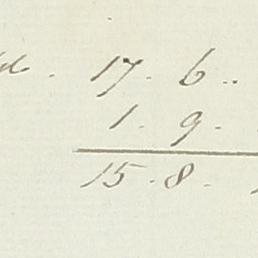 17. 6..
1. 9.
15. 8.